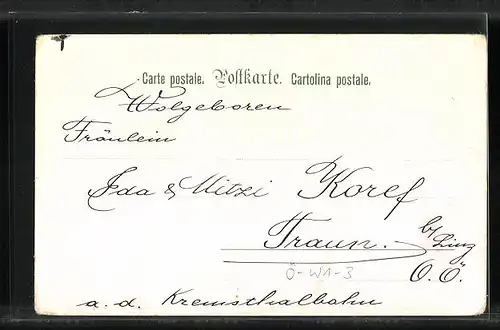 Carte postale. Postkarte. Cartolina postale.
Wolgeboren
Fräulein
Ida & Mitzi Koref
Traun. b/ Linz
O.Ö.
Ö-W1-3
a. d. Kremsthalbahn